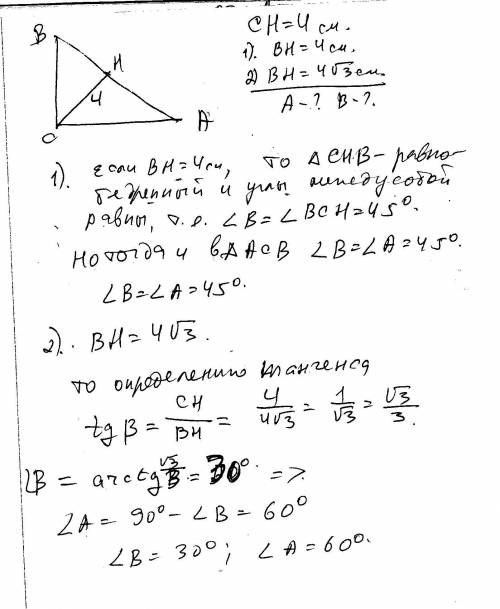 B
H
4
C
A
CH=4 см.
1). BH=4см.
2) BH=4√3 см.
A-? B-?.
1). если BH=4см, то △CHB-равно-
бедренный и углы между собой
равны, т.е. ∠B=∠BCH=45°.
Но тогда и в △ACB ∠B=∠A=45°.
∠B=∠A=45°.
2). BH=4√3.
по определению тангенса
tgβ = CH/BH = 4/4√3 = 1/√3 = √3/3.
∠B = arctg √3/3 = 30°. =>
∠A = 90° - ∠B = 60°
∠B = 30°; ∠A = 60°.